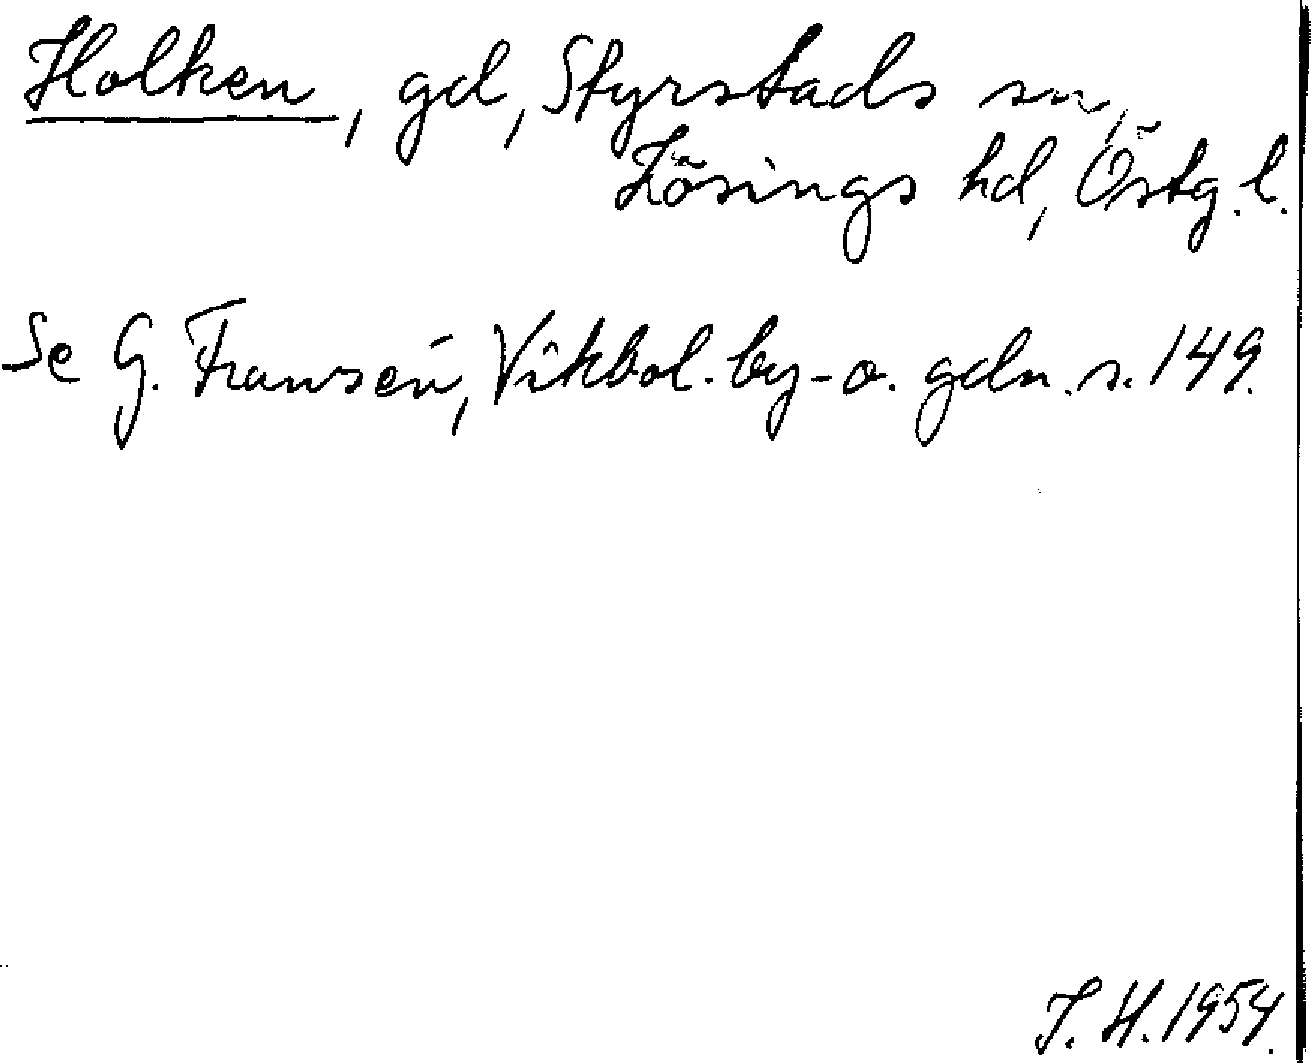 Holken, gd, Styrstads sn,
Lösings hd, Östg. l.
Se G. Fransén, Vikbol. by- o. gdn. s. 149.
J. H. 1954.